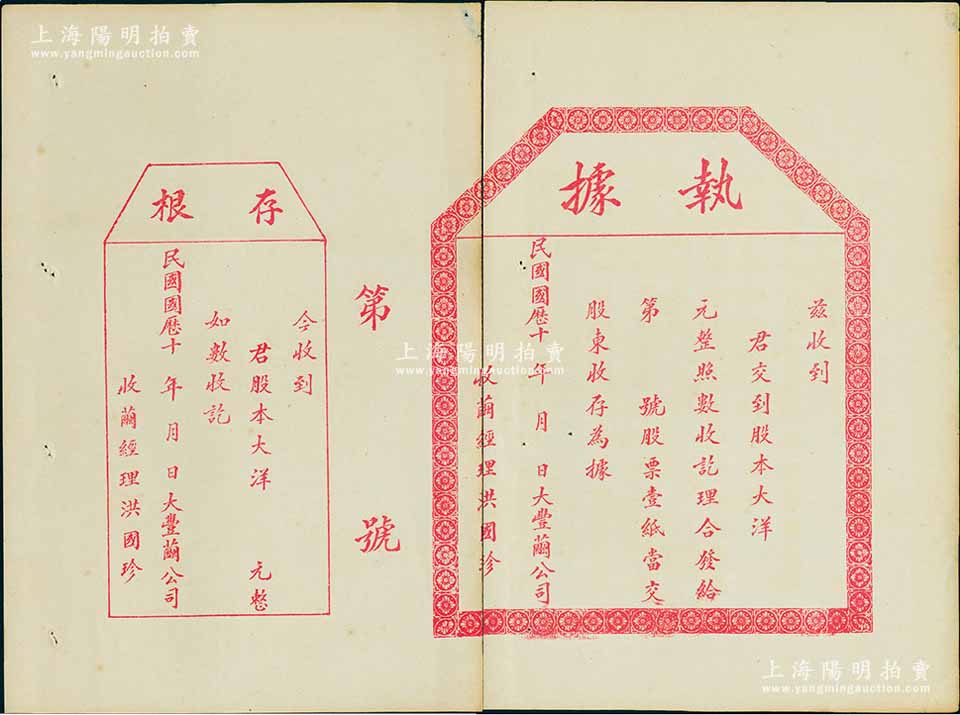 上海陽明拍賣
www.yangmingauction.com
執據
茲收到
君交到股本大洋
元整照數收訖理合發給
第 號股票壹紙當交
股東收存為據
民國國歷十 年 月 日大豐繭公司
收繭經理洪國珍
第 號
存根
今收到
君股本大洋 元整
如數收訖
民國國歷十 年 月 日大豐繭公司
收繭經理洪國珍
上海陽明拍賣
www.yangmingauction.com
上海陽明拍賣
www.yangmingauction.com